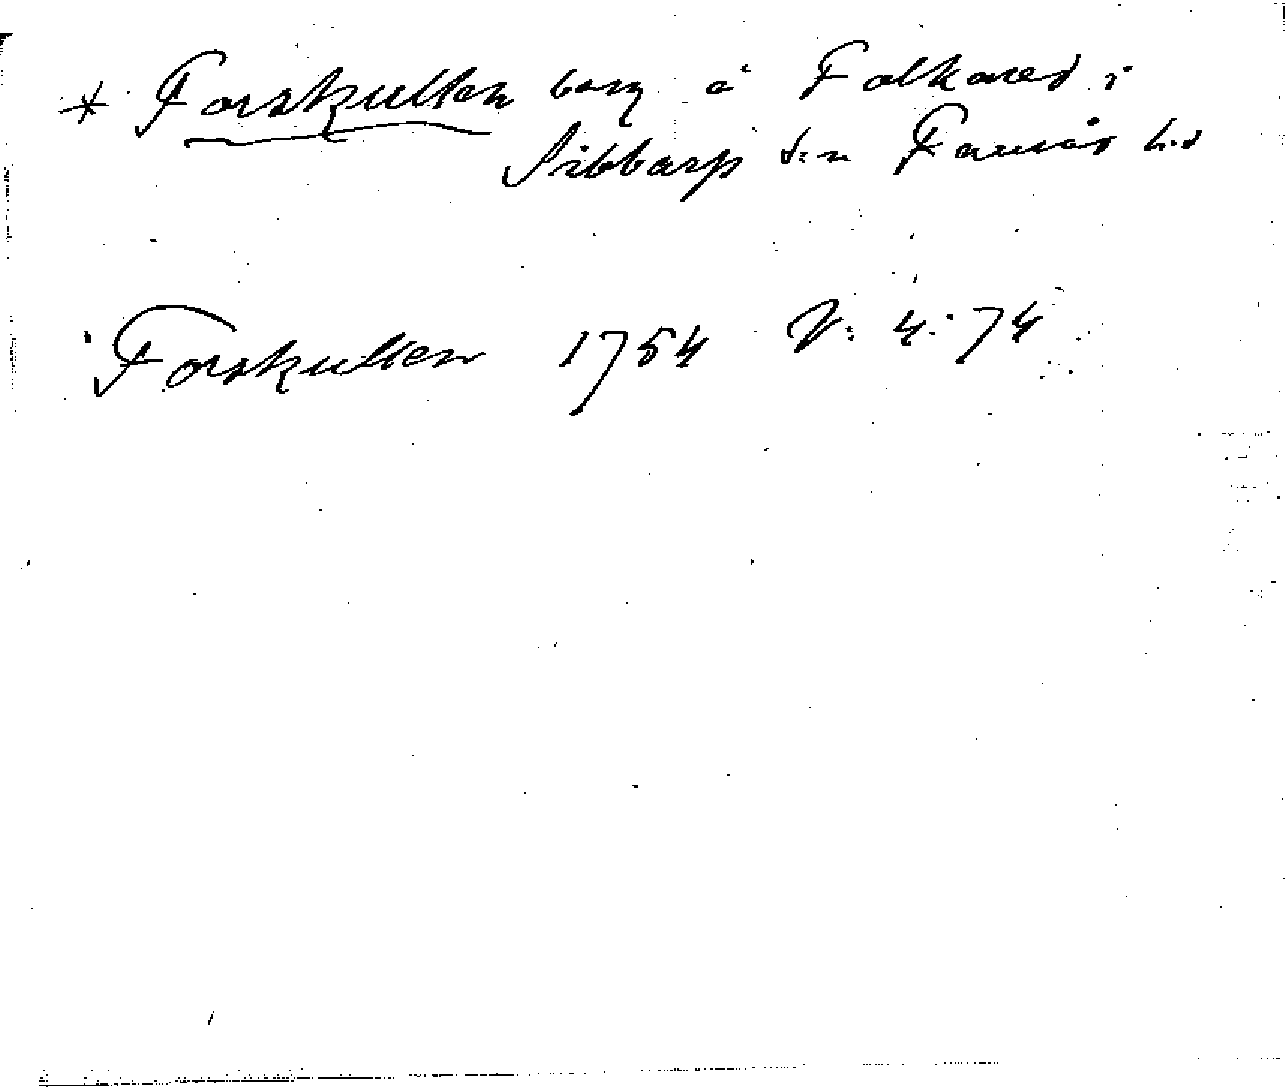 * Forskullen berg å Folkared i
Sibbarp s:n Faurås h:d
Forskullen 1754 V: 4: 74